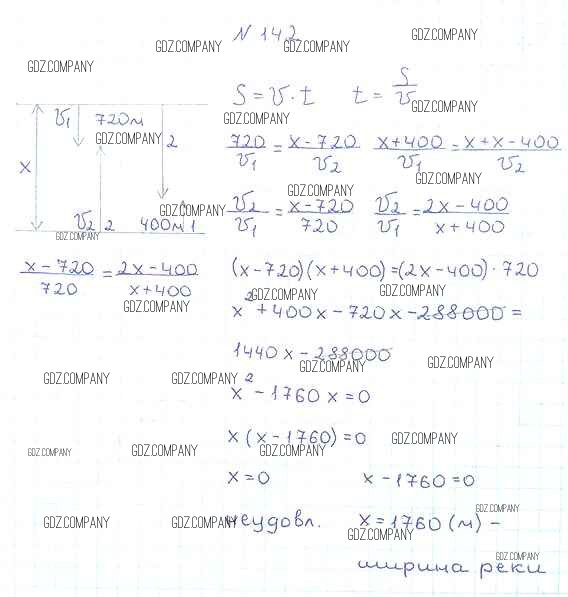 N 142
GDZ.COMPANY GDZ.COMPANY GDZ.COMPANY
GDZ.COMPANY
S = v · t   t = S/v
GDZ.COMPANY
v₁ 720м
GDZ.COMPANY
GDZ.COMPANY 2
720/v₁ = x-720/v₂   x+400/v₁ = x+x-400/v₂
x
GDZ.COMPANY
GDZ.COMPANY
v₂ 2 400м 1
GDZ.COMPANY
GDZ.COMPANY
v₂/v₁ = x-720/720   v₂/v₁ = 2x-400/x+400
x-720/720 = 2x-400/x+400
(x-720)(x+400)=(2x-400)·720
GDZ.COMPANY GDZ.COMPANY GDZ.COMPANY
x² + 400x - 720x - 288000 =
1440x - 288000
GDZ.COMPANY GDZ.COMPANY
GDZ.COMPANY GDZ.COMPANY
x² - 1760x = 0
x(x-1760) = 0
GDZ.COMPANY
GDZ.COMPANY GDZ.COMPANY GDZ.COMPANY
x = 0   x - 1760 = 0
GDZ.COMPANY
GDZ.COMPANY GDZ.COMPANY
неудовл.   x = 1760 (м) -
GDZ.COMPANY
GDZ.COMPANY
ширина реки